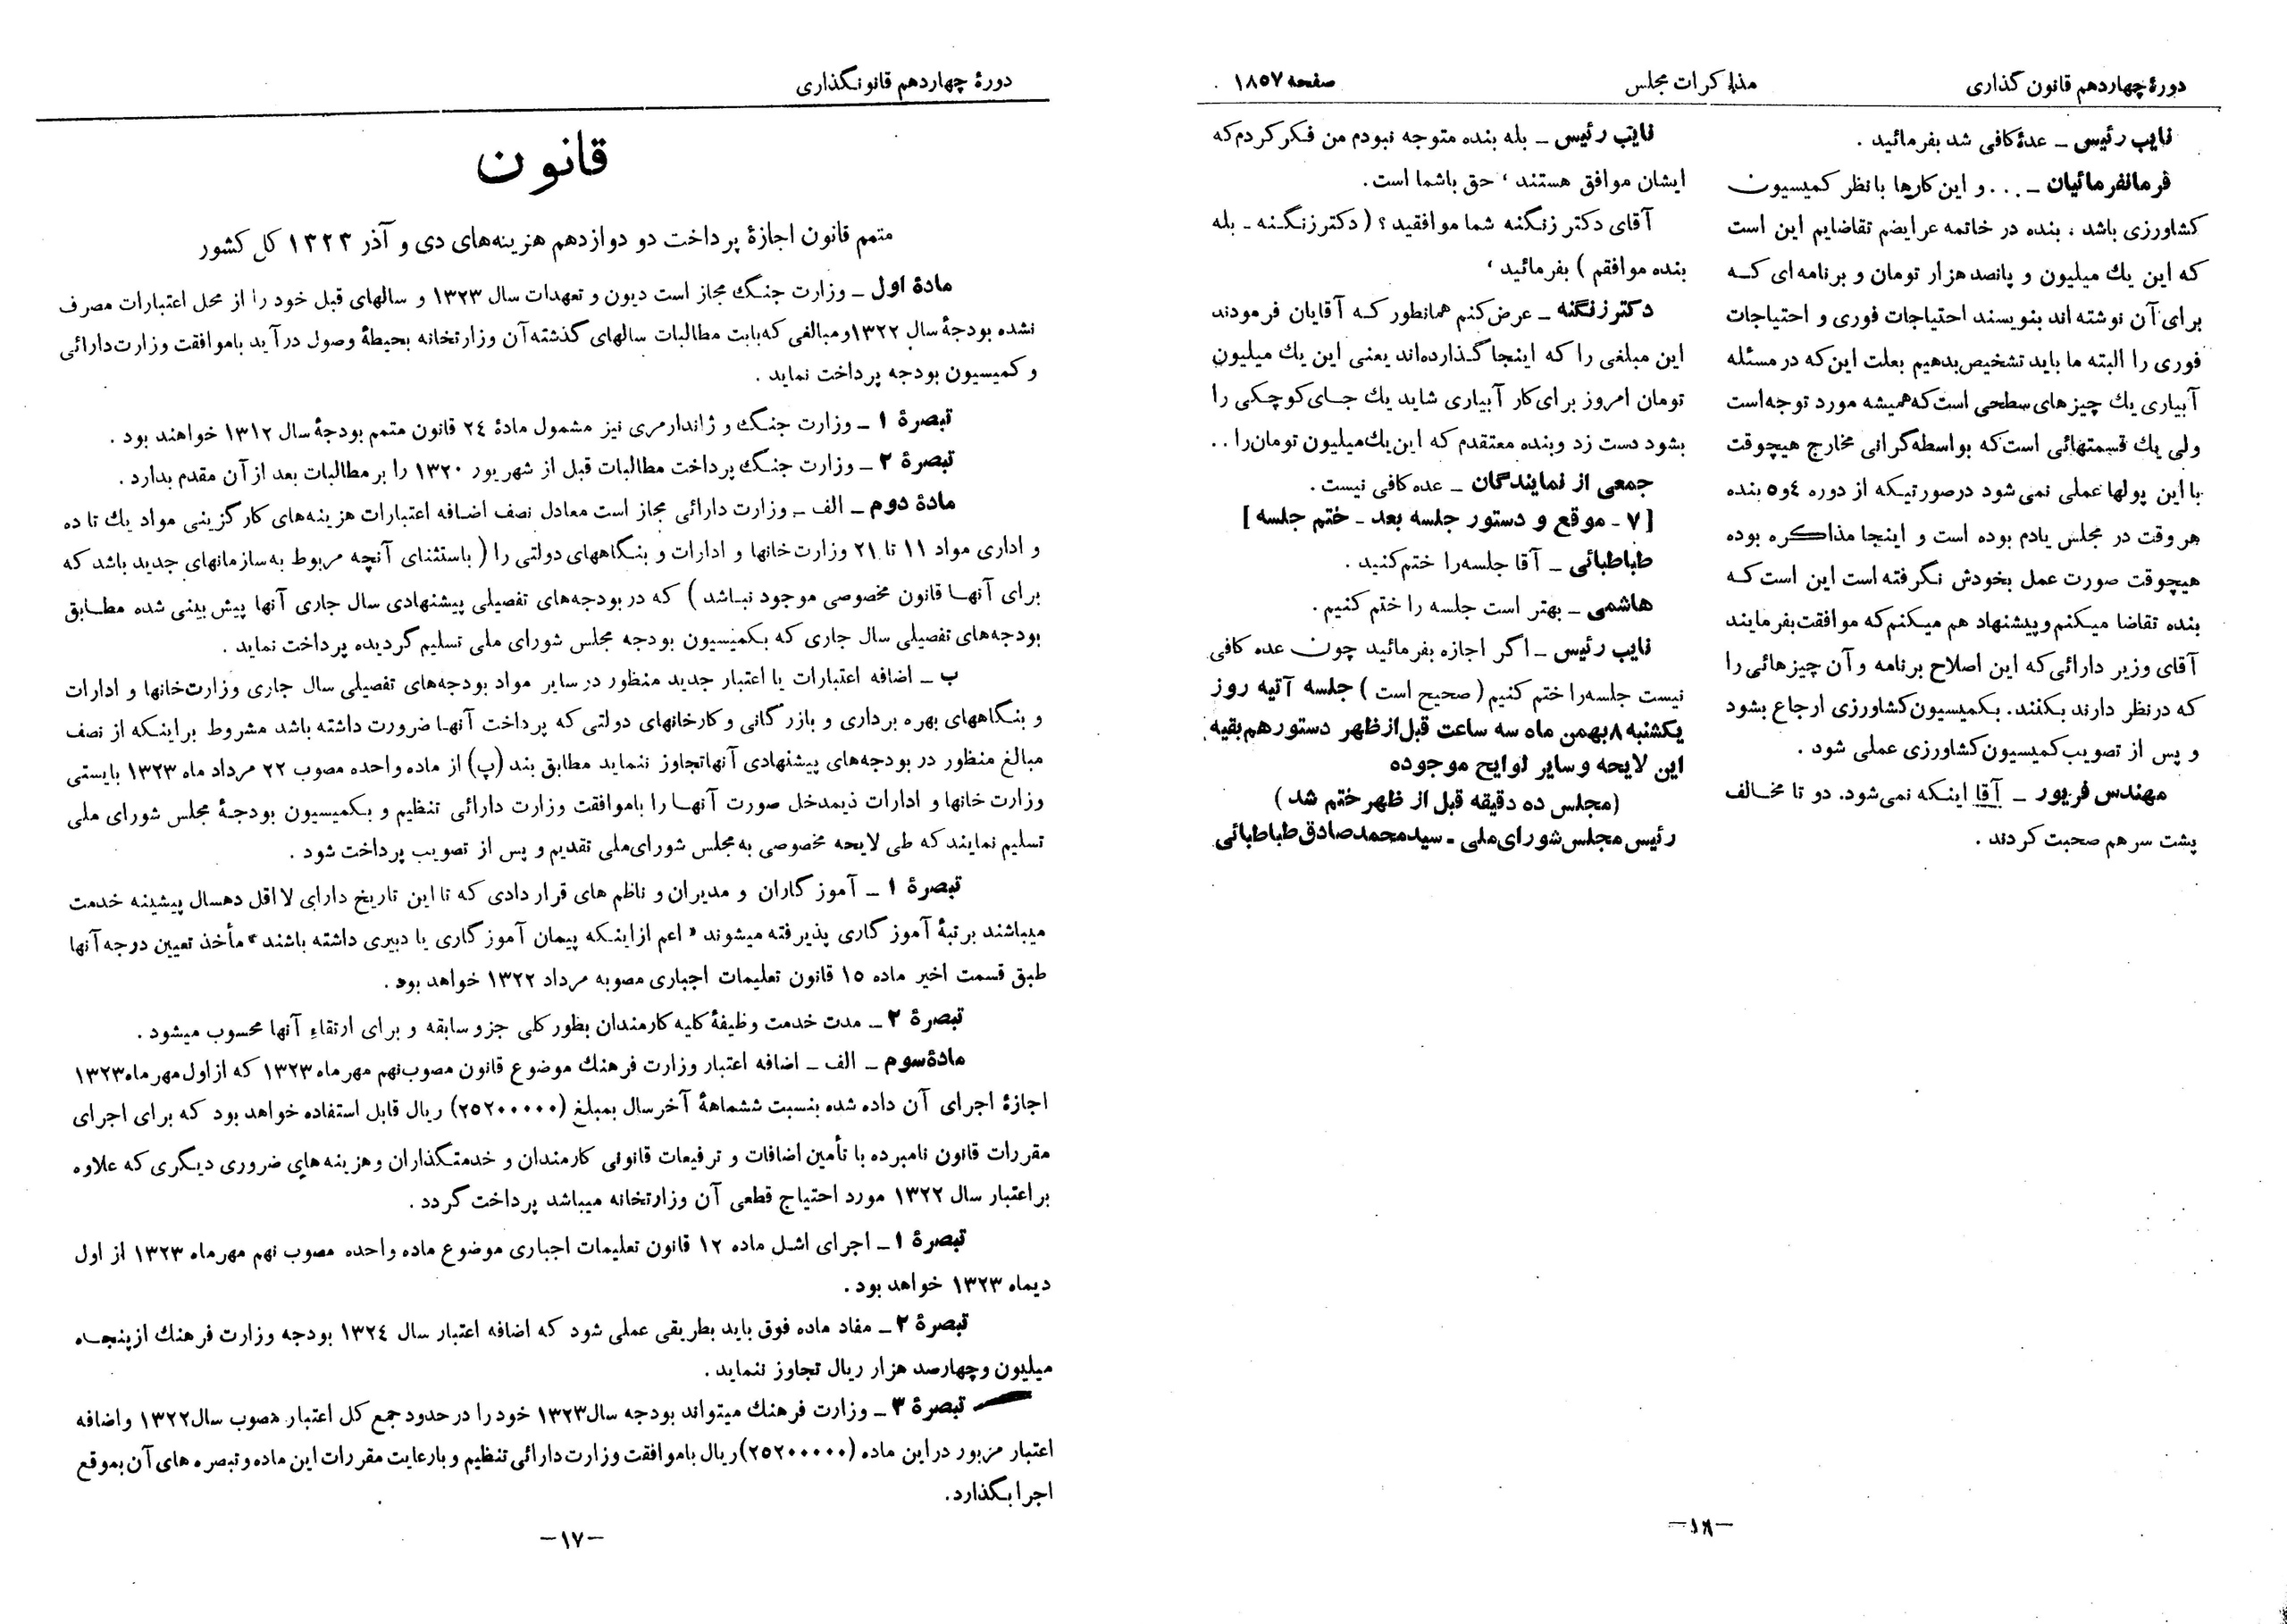 دورهٔ چهاردهم قانون گذاری
مذاکرات مجلس
صفحه ۱۸۵۷
نایب رئیس ـ عدهٔ کافی شد بفرمائید .
فرمانفرمائیان ـ ... و این کارها با نظر کمیسیون
کشاورزی باشد ، بنده در خاتمه عرایضم تقاضایم این است
که این یك میلیون و پانصد هزار تومان و برنامه ای که
برای آن نوشته اند بنویسند احتیاجات فوری و احتیاجات
فوری را البته ما باید تشخیص بدهیم بعلت این که در مسئله
آبیاری یك چیزهای سطحی است که همیشه مورد توجه است
ولی یك قسمتهائی است که بواسطه گرانی مخارج هیچوقت
با این پولها عملی نمی شود در صورتیکه از دوره ٤و٥ بنده
هر وقت در مجلس یادم بوده است و اینجا مذاکره بوده
هیچوقت صورت عمل بخودش نگرفته است این است که
بنده تقاضا میکنم و پیشنهاد هم میکنم که موافقت بفرمایند
آقای وزیر دارائی که این اصلاح برنامه و آن چیزهائی را
که در نظر دارند بکنند. بکمیسیون کشاورزی ارجاع بشود
و پس از تصویب کمیسیون کشاورزی عملی شود .
مهندس فریور ـ آقا اینکه نمی شود. دو تا مخالف
پشت سر هم صحبت کردند .
نایب رئیس ـ بله بنده متوجه نبودم من فکر کردم که
ایشان موافق هستند ، حق باشما است .
آقای دکتر زنگنه شما موافقید ؟ ( دکتر زنگنه ـ بله
بنده موافقم ) بفرمائید ،
دکتر زنگنه ـ عرض کنم همانطور که آقایان فرمودند
این مبلغی را که اینجا گذارده اند یعنی این یك میلیون
تومان امروز برای کار آبیاری شاید یك جای کوچکی را
بشود دست زد و بنده معتقدم که این یك میلیون تومان را . .
جمعی از نمایندگان ـ عده کافی نیست .
[ ۷ ـ موقع و دستور جلسه بعد ـ ختم جلسه ]
طباطبائی ـ آقا جلسه را ختم کنید .
هاشمی ـ بهتر است جلسه را ختم کنیم .
نایب رئیس ـ اگر اجازه بفرمائید چون عده کافی
نیست جلسه را ختم کنیم ( صحیح است ) جلسه آتیه روز
یکشنبه ۸ بهمن ماه سه ساعت قبل از ظهر دستور هم بقیه
این لایحه و سایر لوایح موجوده
(مجلس ده دقیقه قبل از ظهر ختم شد )
رئیس مجلس شورای ملی ـ سید محمد صادق طباطبائی
—۱۸—
دورهٔ چهاردهم قانونگذاری
قانون
متمم قانون اجازهٔ پرداخت دو دوازدهم هزینه‌های دی و آذر ۱۳۲۳ کل کشور
مادهٔ اول ـ وزارت جنگ مجاز است دیون و تعهدات سال ۱۳۲۳ و سالهای قبل خود را از محل اعتبارات مصرف
نشده بودجهٔ سال ۱۳۲۲ و مبالغی که بابت مطالبات سالهای گذشته آن وزارتخانه بحیطهٔ وصول در آید با موافقت وزارت دارائی
و کمیسیون بودجه پرداخت نماید .
تبصرهٔ ۱ ـ وزارت جنگ و ژاندارمری نیز مشمول مادهٔ ۲٤ قانون متمم بودجهٔ سال ۱۳۱۲ خواهند بود .
تبصرهٔ ۲ ـ وزارت جنگ پرداخت مطالبات قبل از شهریور ۱۳۲۰ را بر مطالبات بعد از آن مقدم بدارد .
مادهٔ دوم ـ الف ـ وزارت دارائی مجاز است معادل نصف اضافه اعتبارات هزینه‌های کارگزینی مواد یك تا ده
و اداری مواد ۱۱ تا ۲۱ وزارت خانها و ادارات و بنگاههای دولتی را ( باستثنای آنچه مربوط به سازمانهای جدید باشد که
برای آنها قانون مخصوصی موجود نباشد ) که در بودجه‌های تفصیلی پیشنهادی سال جاری آنها پیش بینی شده مطابق
بودجه‌های تفصیلی سال جاری که بکمیسیون بودجه مجلس شورای ملی تسلیم گردیده پرداخت نماید .
ب ـ اضافه اعتبارات یا اعتبار جدید منظور در سایر مواد بودجه‌های تفصیلی سال جاری وزارت خانها و ادارات
و بنگاههای بهره برداری و بازرگانی و کارخانهای دولتی که پرداخت آنها ضرورت داشته باشد مشروط بر اینکه از نصف
مبالغ منظور در بودجه‌های پیشنهادی آنها تجاوز ننماید مطابق بند (پ) از ماده واحده مصوب ۲۲ مرداد ماه ۱۳۲۳ بایستی
وزارت خانها و ادارات ذیمدخل صورت آنها را با موافقت وزارت دارائی تنظیم و بکمیسیون بودجهٔ مجلس شورای ملی
تسلیم نمایند که طی لایحه مخصوصی به مجلس شورای ملی تقدیم و پس از تصویب پرداخت شود .
تبصرهٔ ۱ ـ آموزگاران و مدیران و ناظم های قرار دادی که تا این تاریخ دارای لا اقل دهسال پیشینه خدمت
میباشند برتبهٔ آموزگاری پذیرفته میشوند «اعم از اینکه پیمان آموزگاری یا دبیری داشته باشند» مأخذ تعیین درجه آنها
طبق قسمت اخیر ماده ۱٥ قانون تعلیمات اجباری مصوبه مرداد ۱۳۲۲ خواهد بود .
تبصرهٔ ۲ ـ مدت خدمت وظیفهٔ کلیه کارمندان بطور کلی جزو سابقه و برای ارتقاء آنها محسوب میشود .
مادهٔ سوم ـ الف ـ اضافه اعتبار وزارت فرهنك موضوع قانون مصوب نهم مهر ماه ۱۳۲۳ که از اول مهر ماه ۱۳۲۳
اجازهٔ اجرای آن داده شده بنسبت ششماههٔ آخر سال بمبلغ (۲٥۲۰۰۰۰۰) ریال قابل استفاده خواهد بود که برای اجرای
مقررات قانون نامبرده با تأمین اضافات و ترفیعات قانونی کارمندان و خدمتگذاران و هزینه های ضروری دیگری که علاوه
بر اعتبار سال ۱۳۲۲ مورد احتیاج قطعی آن وزارتخانه میباشد پرداخت گردد .
تبصرهٔ ۱ ـ اجرای اشل ماده ۱۲ قانون تعلیمات اجباری موضوع ماده واحده مصوب نهم مهرماه ۱۳۲۳ از اول
دیماه ۱۳۲۳ خواهد بود .
تبصرهٔ ۲ ـ مفاد ماده فوق باید بطریقی عملی شود که اضافه اعتبار سال ۱۳۲٤ بودجه وزارت فرهنك از پنجاه
میلیون و چهارصد هزار ریال تجاوز ننماید .
تبصرهٔ ۳ ـ وزارت فرهنك میتواند بودجه سال ۱۳۲۳ خود را در حدود جمع کل اعتبار مصوب سال ۱۳۲۲ و اضافه
اعتبار مزبور در این ماده (۲٥۲۰۰۰۰۰) ریال با موافقت وزارت دارائی تنظیم و با رعایت مقررات این ماده و تبصره های آن بموقع
اجرا بگذارد.
—۱۷—